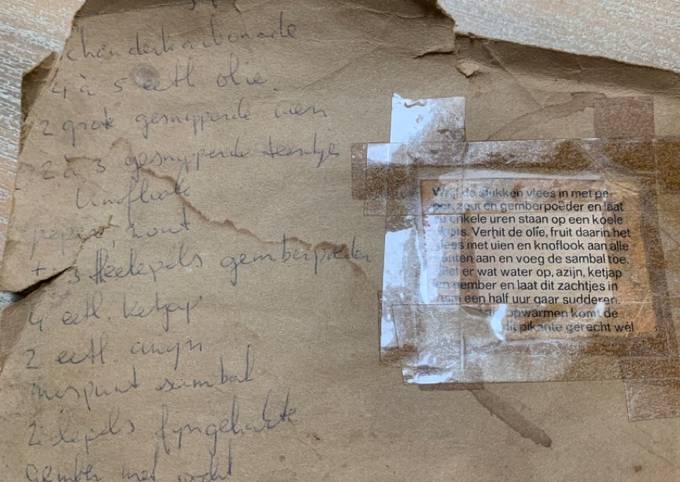 schouderkarbonade
4 à 5 eetl olie
2 grote gesnipperde uien
2 à 3 gesnipperde teentjes
knoflook
peper, zout
+ 3 theelepels gemberpoeder
4 eetl. ketjap
2 eetl azijn
mespunt sambal
2 lepels fyngehakte
gember met vocht
Wrijf de stukken vlees in met pe-
per, zout en gemberpoeder en laat
nu enkele uren staan op een koele
plaats. Verhit de olie, fruit daarin het
vlees met uien en knoflook aan alle
kanten aan en voeg de sambal toe.
Giet er wat water op, azijn, ketjap
en gember en laat dit zachtjes in
ruim een half uur gaar sudderen.
opwarmen komt de
dit pikante gerecht wel